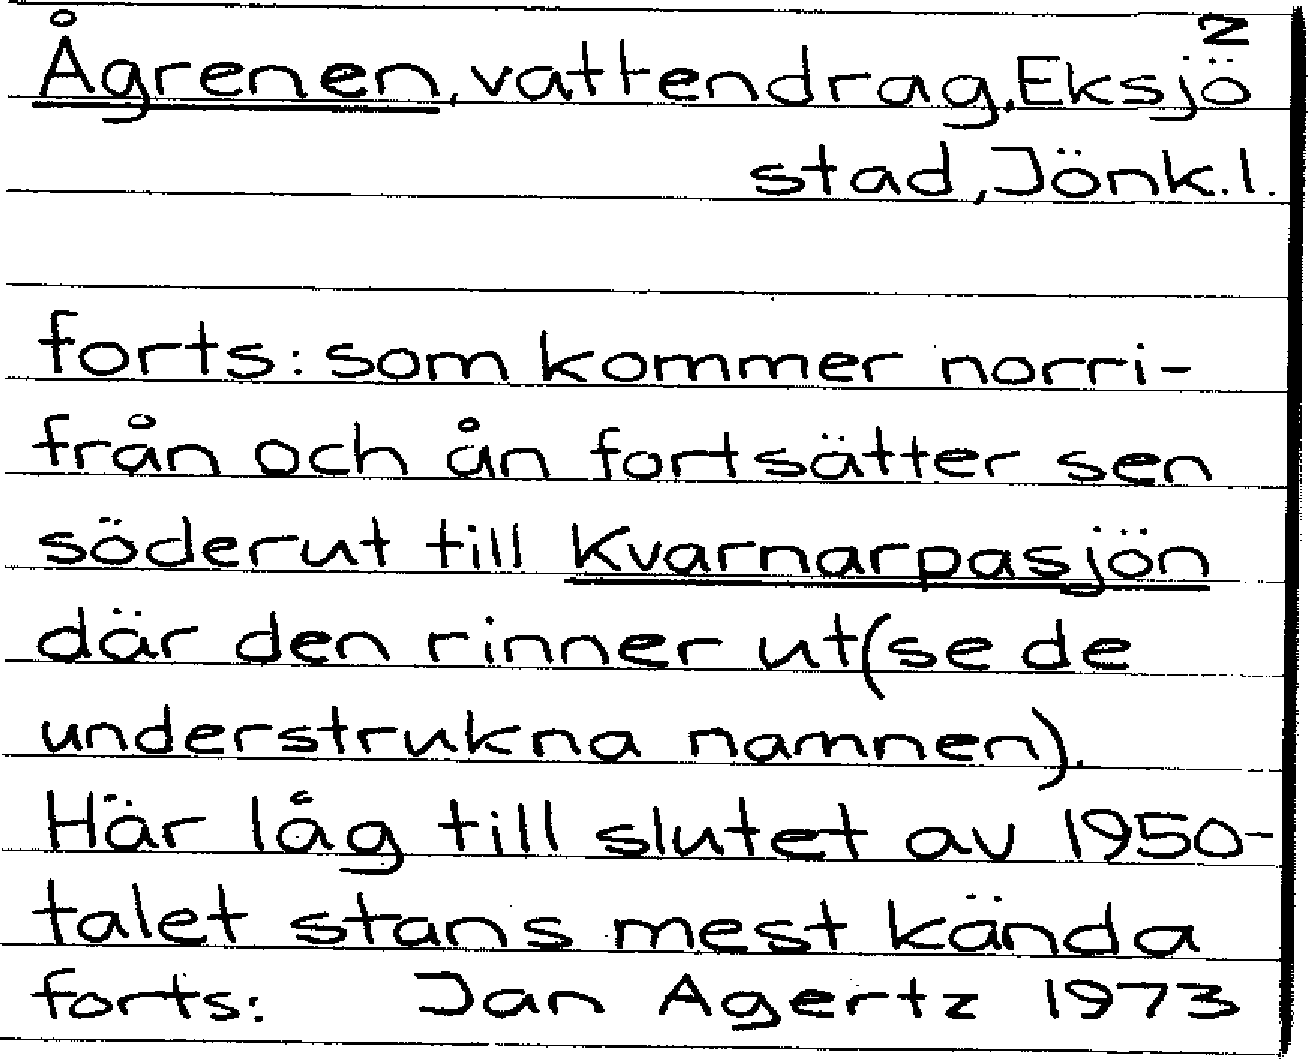 2
Ågrenen, vattendrag. Eksjö
stad, Jönk.l.
forts: som kommer norri-
från och ån fortsätter sen
söderut till Kvarnarpasjön
där den rinner ut(se de
understrukna namnen).
Här låg till slutet av 1950-
talet stans mest kända
forts: Jan Agertz 1973